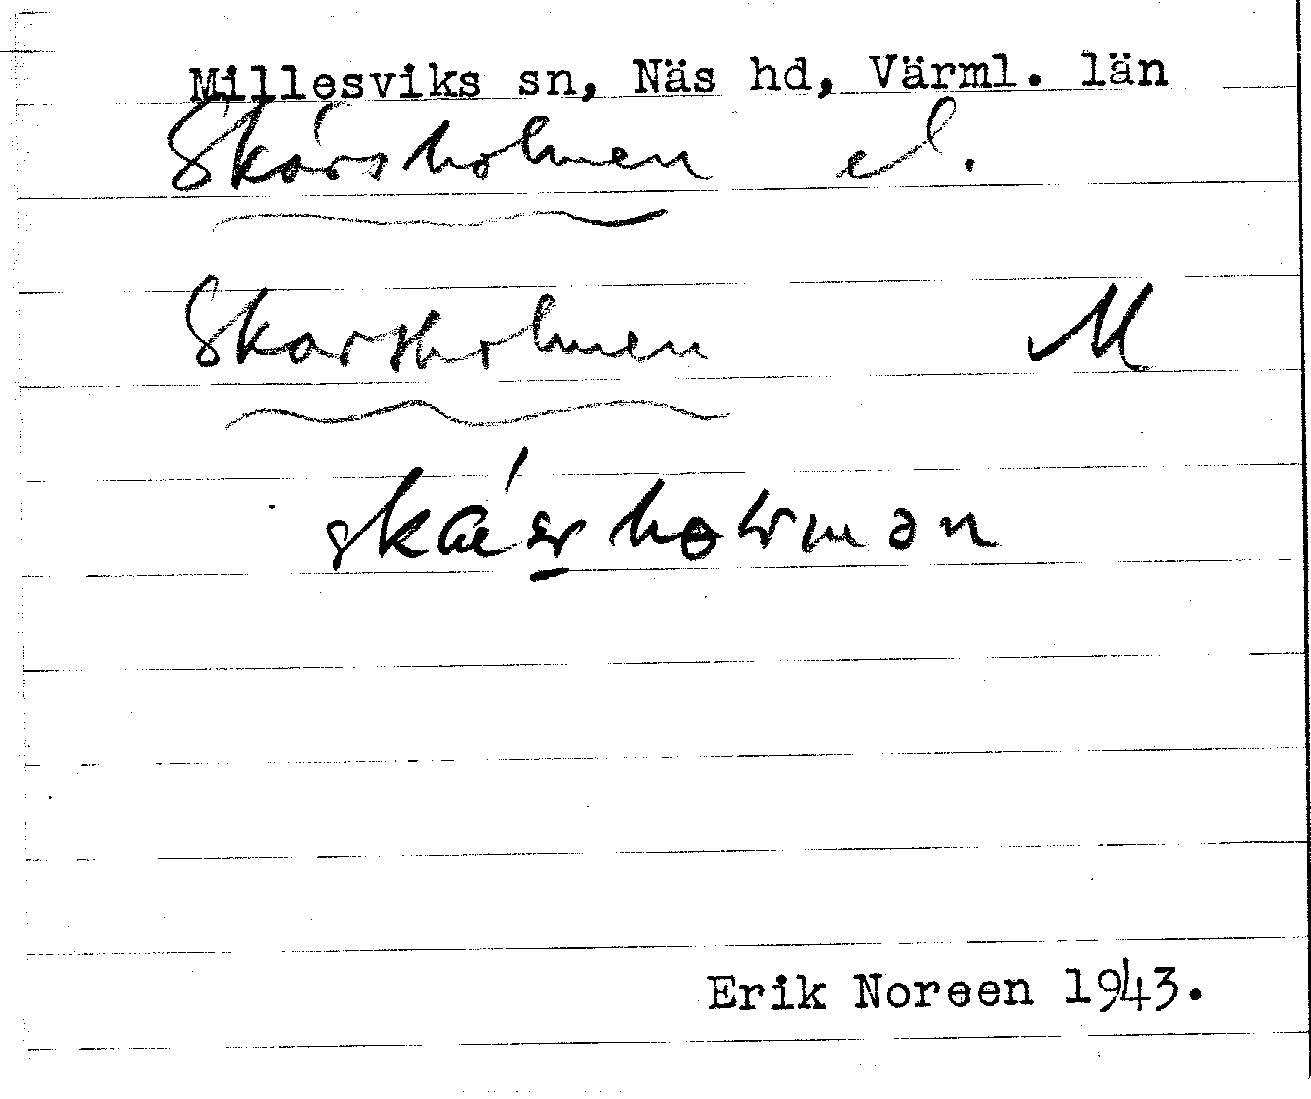 Millesviks sn, Näs hd, Värml. län
Skårsholmen el.
Skarsholmen M
Erik Noreen 1943.